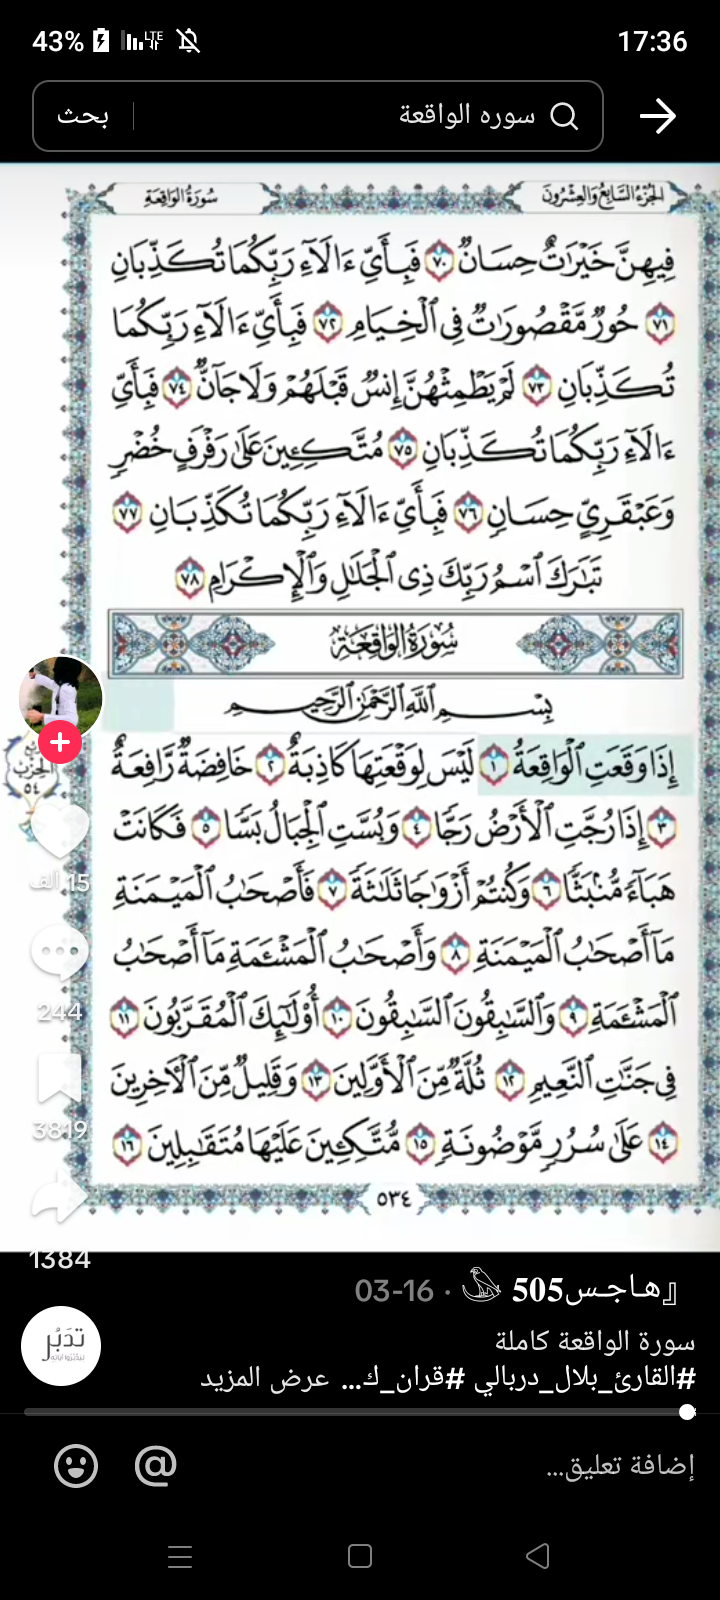 43% LTE 17:36
سوره الواقعة بحث
الجزء السابع والعشرون سورة الواقعة
فِيهِنَّ خَيْرَٰتٌ حِسَانٌ ٧٠ فَبِأَيِّ ءَالَآءِ رَبِّكُمَا تُكَذِّبَانِ
٧١ حُورٌ مَّقْصُورَٰتٌ فِى ٱلْخِيَامِ ٧٢ فَبِأَيِّ ءَالَآءِ رَبِّكُمَا
تُكَذِّبَانِ ٧٣ لَمْ يَطْمِثْهُنَّ إِنسٌ قَبْلَهُمْ وَلَا جَآنٌّ ٧٤ فَبِأَيِّ
ءَالَآءِ رَبِّكُمَا تُكَذِّبَانِ ٧٥ مُتَّكِـِٔينَ عَلَىٰ رَفْرَفٍ خُضْرٍ
وَعَبْقَرِيٍّ حِسَانٍ ٧٦ فَبِأَيِّ ءَالَآءِ رَبِّكُمَا تُكَذِّبَانِ ٧٧
تَبَٰرَكَ ٱسْمُ رَبِّكَ ذِى ٱلْجَلَٰلِ وَٱلْإِكْرَامِ ٧٨
سُورَةُ الوَاقِعَةِ
بِسْمِ ٱللَّهِ ٱلرَّحْمَٰنِ ٱلرَّحِيمِ
إِذَا وَقَعَتِ ٱلْوَاقِعَةُ ١ لَيْسَ لِوَقْعَتِهَا كَاذِبَةٌ ٢ خَافِضَةٌ رَّافِعَةٌ
٣ إِذَا رُجَّتِ ٱلْأَرْضُ رَجًّا ٤ وَبُسَّتِ ٱلْجِبَالُ بَسًّا ٥ فَكَانَتْ
هَبَآءً مُّنۢبَثًّا ٦ وَكُنتُمْ أَزْوَٰجًا ثَلَٰثَةً ٧ فَأَصْحَٰبُ ٱلْمَيْمَنَةِ
مَآ أَصْحَٰبُ ٱلْمَيْمَنَةِ ٨ وَأَصْحَٰبُ ٱلْمَشْـَٔمَةِ مَآ أَصْحَٰبُ
ٱلْمَشْـَٔمَةِ ٩ وَٱلسَّٰبِقُونَ ٱلسَّٰبِقُونَ ١٠ أُو۟لَٰٓئِكَ ٱلْمُقَرَّبُونَ ١١
فِى جَنَّٰتِ ٱلنَّعِيمِ ١٢ ثُلَّةٌ مِّنَ ٱلْأَوَّلِينَ ١٣ وَقَلِيلٌ مِّنَ ٱلْءَاخِرِينَ
١٤ عَلَىٰ سُرُرٍ مَّوْضُونَةٍ ١٥ مُّتَّكِـِٔينَ عَلَيْهَا مُتَقَٰبِلِينَ ١٦
٥٣٤
الحزب
٥٤
15 ألف
244
3819
1384
『هـاجـس505 · 03-16
تدبر
سورة الواقعة كاملة
#القارئ_بلال_دربالي #قران_ك... عرض المزيد
إضافة تعليق... @